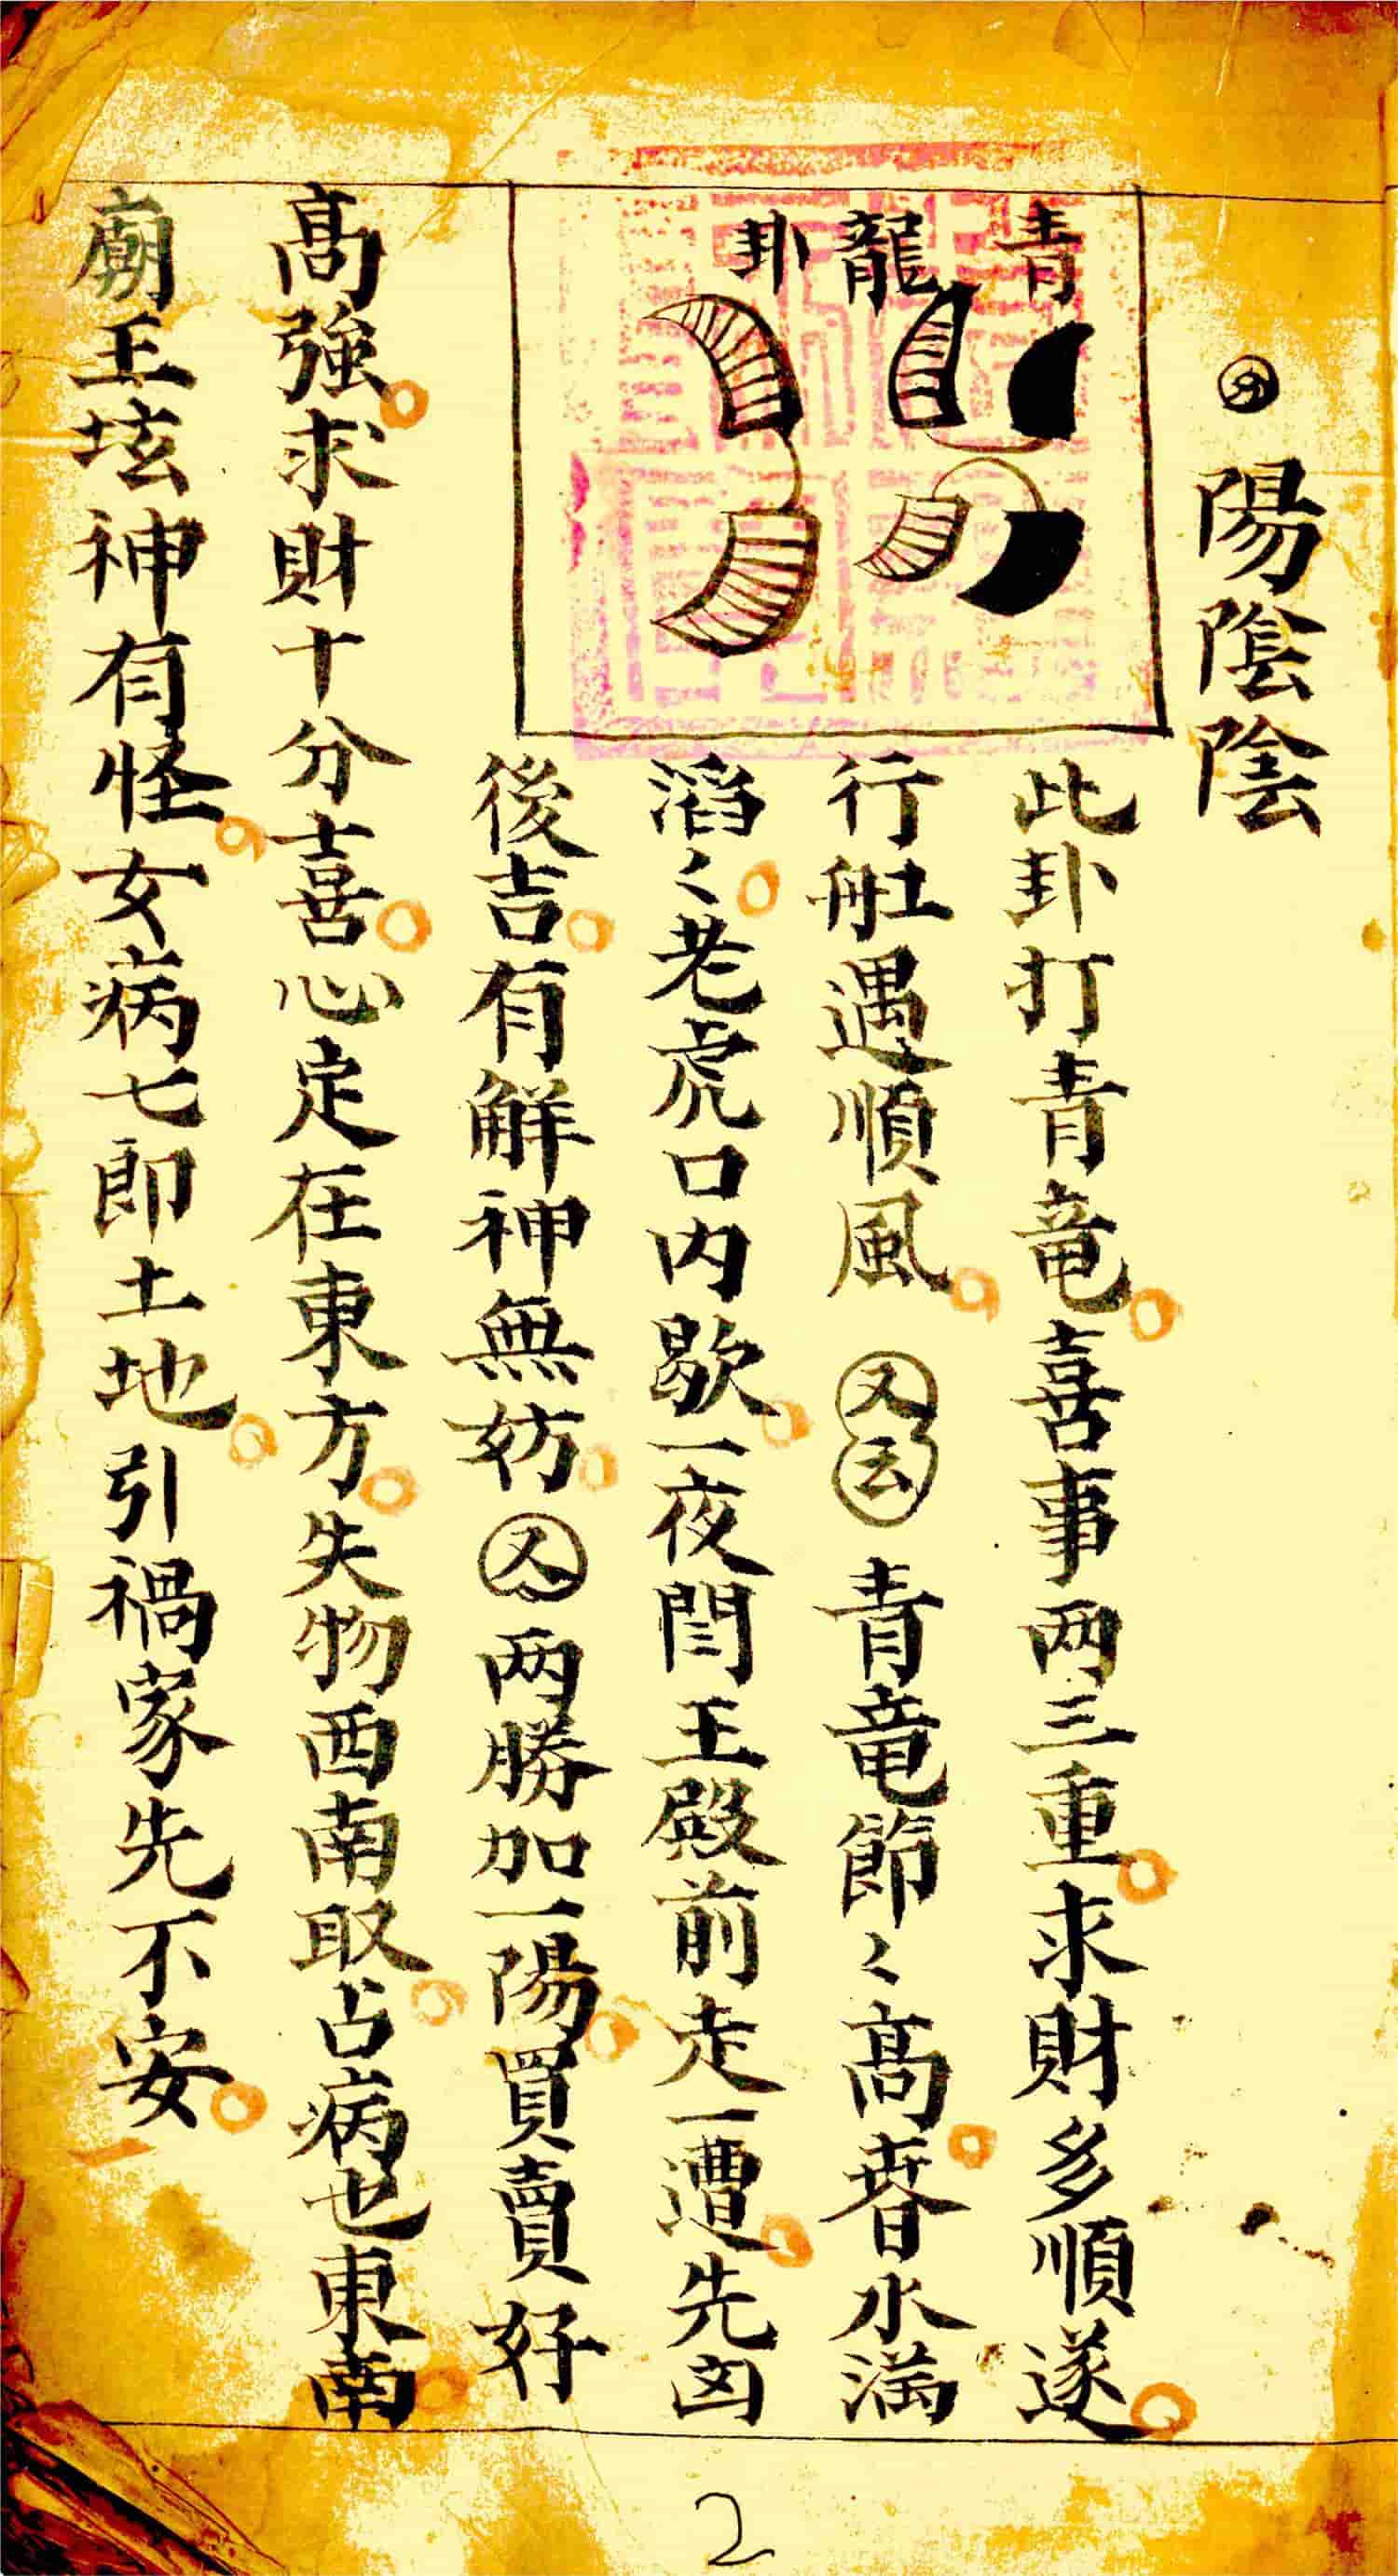 陽陰陰
青龍卦
此卦打青竜喜事两三重求財多順遂
行舡遇順風又云青竜節〻高春水满
滔〻老虎口内歇一夜閆王殿前走一遭先凶
後吉有解神無妨又两勝加一陽買賣好
高強求財十分喜心定在東方失物西南取占病也東南
廟王坛神有怪女病七郎土地引禍家先不安
2